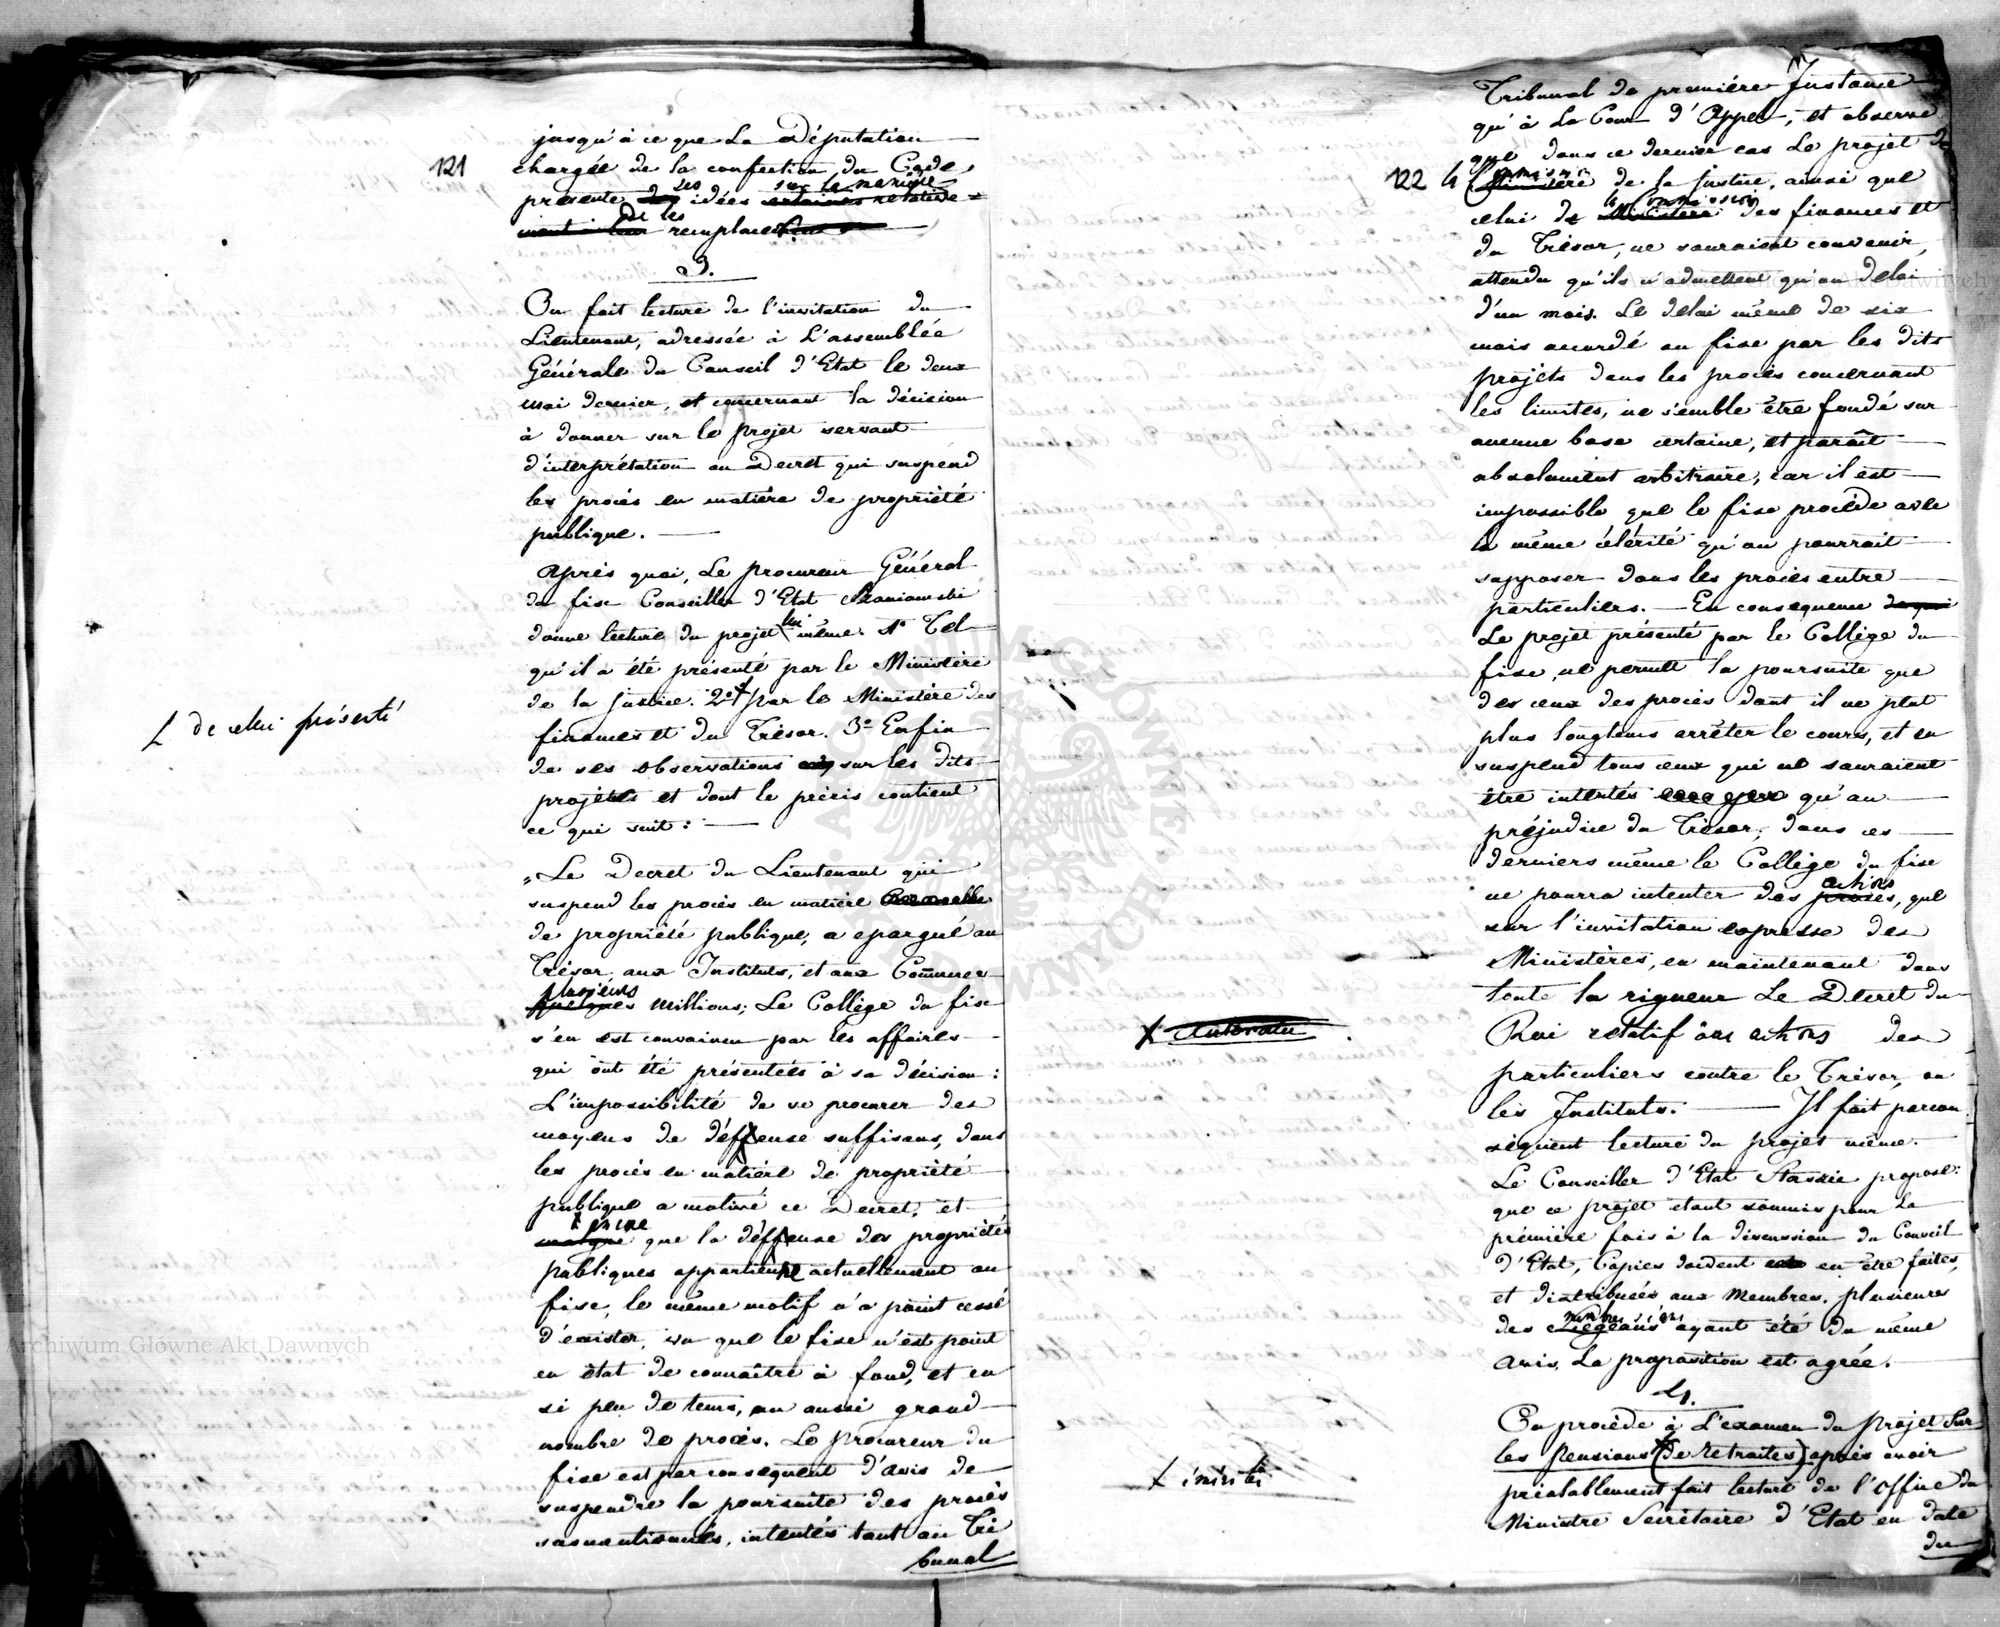 121
jusqu'à ce que La Députation
chargée de la confection du Code,
présente des ses idées certaines relative= sur la manière
ment à leur de les remplacer
3.
On fait lecture de l'invitation du
Lieutenant, adressée à L'assemblée
Générale du Conseil d'Etat le deux
mai dernier, et concernant la décision
à donner sur le projet servant
d'interprétation au Decret qui suspend
les procès en matière de propriété
publique.
Après quoi, Le procureur Général
du fisc Conseiller d'Etat Szaniawski
donne lecture du projet lui même. 1° Tel
qu'il a été présenté par le Ministère
de la justice. 2° L par le Ministère des
finances et du Trésor. 3° Enfin
de ses observations sur les dits
projets et dont le précis contient
ce qui suit:
L de celui présenté
„Le Decret du Lieutenant qui
suspend les procès en matière
de propriété publique, a epargné au
Trésor, aux Instituts, et aux Communes
quelques plusieurs millions; Le Collège du fisc
s'en est convaincu par les affaires
qui ont été présentées à sa décision:
L'impossibilité de se procurer des
moyens de deffense suffisans, dans
les procès en matière de propriété
publique a motivé ce Decret, et
que la deffense des propriétés
publiques appartienne actuellement au
fisc, le même motif n'a point cessé
d'éxister, vu que le fisc n'est point
en état de connaître à fond, et en
si peu de tems, un aussi grand
nombre de procès. Le procureur du
fisc est par consequent d'avis de
suspendre la poursuite des procès
susmentionnés, intentés tant au Tri
bunal
122
Tribunal de première Instance
qu'à La Cour d'Appel, et observe
que dans ce dernier cas Le projet du
Ministère Commission de la justice, ainsi que
celui de Ministère la Commission des finances et
du Trésor, ne sauraient convenir,
attendu qu'ils n'admettent qu'un delai
d'un mois. Le delai même de six
mois accordé au fisc par les dits
projets dans les procès concernant
les limites, ne semble être fondé sur
aucune base certaine, et paraît
absolument arbitraire, car il est
impossible que le fisc procède avec
la même célérité qu'on pourrait
supposer dans les procès entre
particuliers. — En consequence de quoi
Le projet présenté par le Collège du
fisc, ne permet la poursuite que
des ceux des procès dont il ne peut
plus longtems arrêter le cours, et en
suspend tous ceux qui ne sauraient
être intentés qu'au
préjudice du Trésor; dans ces
derniers même le Collège du fisc
ne pourra intenter des procès actions, que
sur l'invitation expresse des
Ministères, en maintenant dans
toute la rigueur Le Decret du
Roi relatif aux actions des
particuliers contre le Trésor, ou
les Instituts. — Il fait par con
séquent lecture du projet même.
Le Conseiller d'Etat Staszic propose:
que ce projet etant soumis pour la
prémière fois à la discussion du Conseil
d'Etat, Copies doident en être faites,
et distribuées aux Membres. plusieurs
des membres ayant été du même
avis, La proposition est agrée.
4.
On procède à L'examen du projet Sur
les Pensions (de retraites) après avoir
préalablement fait lecture de l'Office du
Ministre Secrétaire d'Etat en date
du
Archiwum Główne Akt Dawnych
Archiwum Główne Akt Dawnych
ARCHIWUM GŁÓWNE AKT DAWNYCH